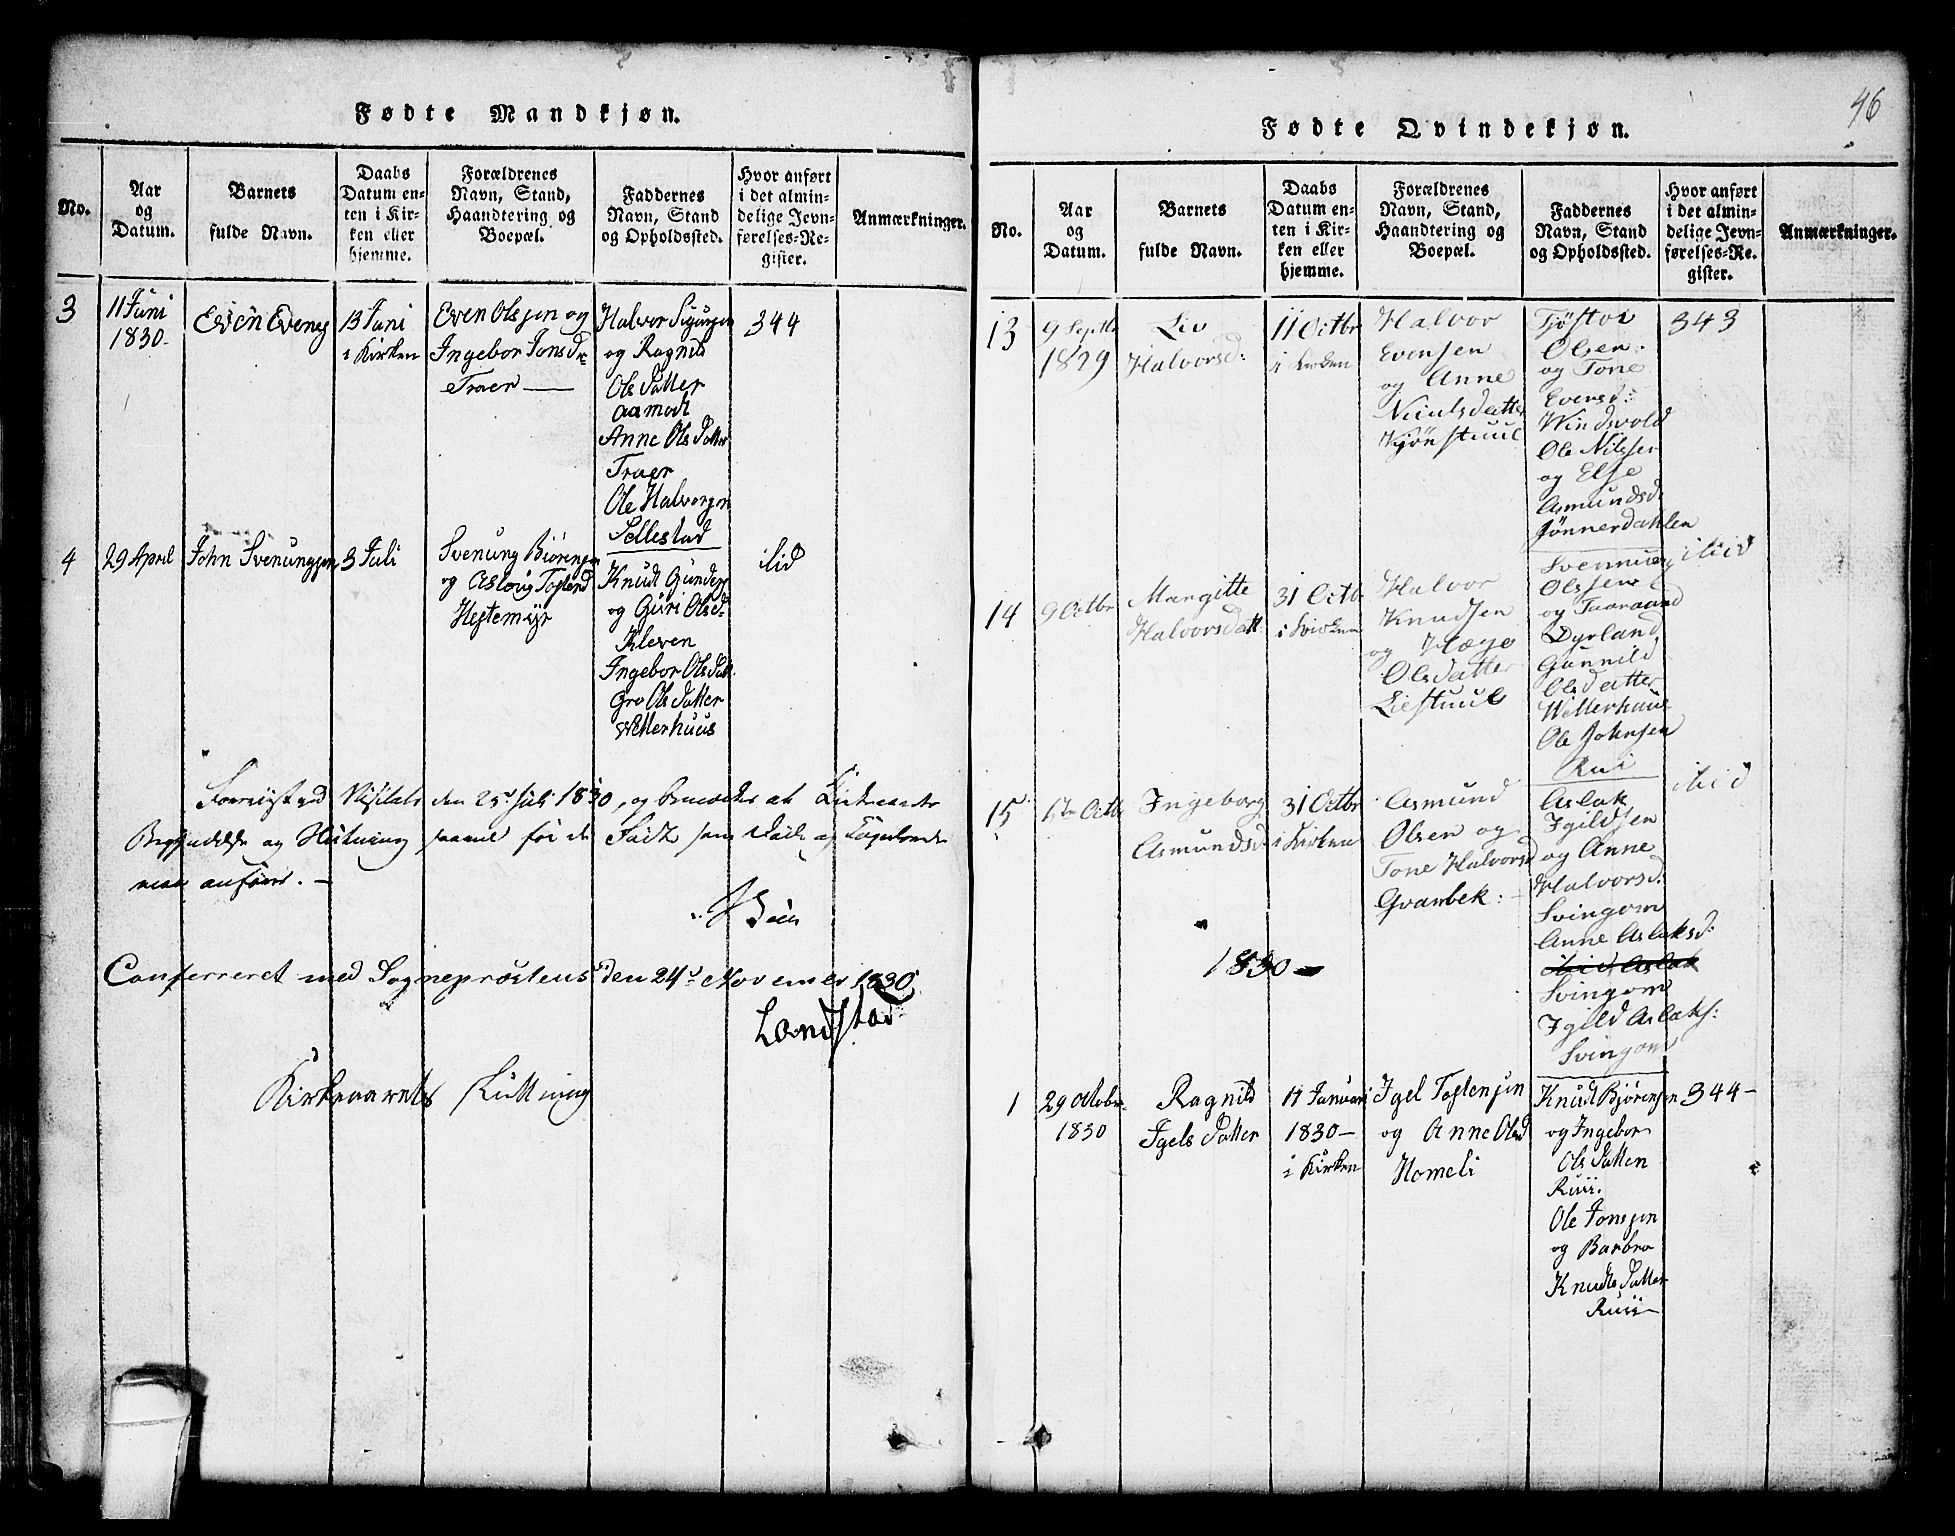 Fødte Mandkjøn.
No.
Aar
og
Datum.
Barnets
fulde Navn.
Daabs
Datum en-
ten i Kir-
ken eller
hjemme.
Forældrenes
Navn, Stand,
Haandtering og
Boepæl.
Faddernes
Navn, Stand
og Opholdssted.
Hvor anført
i det almin-
delige Jevn-
førelses-Re-
gister.
Anmærkninger.
3
11 Juni
1830-
Even Evens
13 Juni
i Kirken
Even Olssen og
Ingebor Jonsdr
Traer
Halvor Sigursen
og Ragnild
Ols Datter
aamodt
Anne Ols Datter
Traer
Ole Halvorsen
Sellestad
344
4
29 April
John Svenungsen
3 Juli
Svenung Biörensen
og Asloug Tostend
Hestemyr
Knudt Gunders
og Guri Olsd:
Kleven
Ingebor Ols Datt
Gro Ols Datter
Vetterhuus
ibid
den 25d Juli 1830, og at
og
anføres. -
Conferreret med Sogneprøstens den 24d November 1830
Landstad
Kirkevarets
46
Fødte Qvindekjøn.
No.
Aar
og
Datum.
Barnets
fulde Navn.
Daabs
Datum en-
ten i Kir-
ken eller
hjemme.
Forældrenes
Navn, Stand,
Haandtering og
Boepæl.
Faddernes
Navn, Stand
og Opholdssted.
Hvor anført
i det almin-
delige Jevn-
førelses-Re-
gister.
Anmærkninger.
13
9 Septbr
1829
Liv
Halvorsd:
11 Octbr
i Kirken
Halvor
Evensen
og Anne
Nieulsdatter
Kjönstuul
Tjöstov
Olsen
og Tone
Evensd:
Windsvold
Ole Nilssen
og Else
Asmundsd.
Jönnerdahlen
343
14
9 Octbr
Margitte
Halvorsdatt.
31 Octb
i Kirken
Halvor
Knudsen
og Hæge
Olsdatter
Liestuul
Svennung
Olssen
og Taaraand
Dyrland
Gunnild
Olsdatter
Wetterhuus
Ole Johnsen
Rui
ibid
15
Octbr
Ingeborg
Asmundsd.
31 Octbr
i Kirken
Asmund
Olsen og
Tone Halvorsd
Gvambek: -
Aslak
Igildsen
og Anne
Halvorsd:
Svingom
Anne Aslaksd:
ibid Aslak
Svingom
Igild Aslaks:
Svingom
ibid
1830 -
1
29 Octobr
1830
Ragnild
Igels Datter
11 Januari
1830-
i Kirken
Igel Tostensen
og Anne Olsd
Homeli
Knudt Bjørensen
og Ingebor
Ols Datter
Ruii.
Ole Jonssen
og Barbro
Knudts Datter
Ruii-
344-